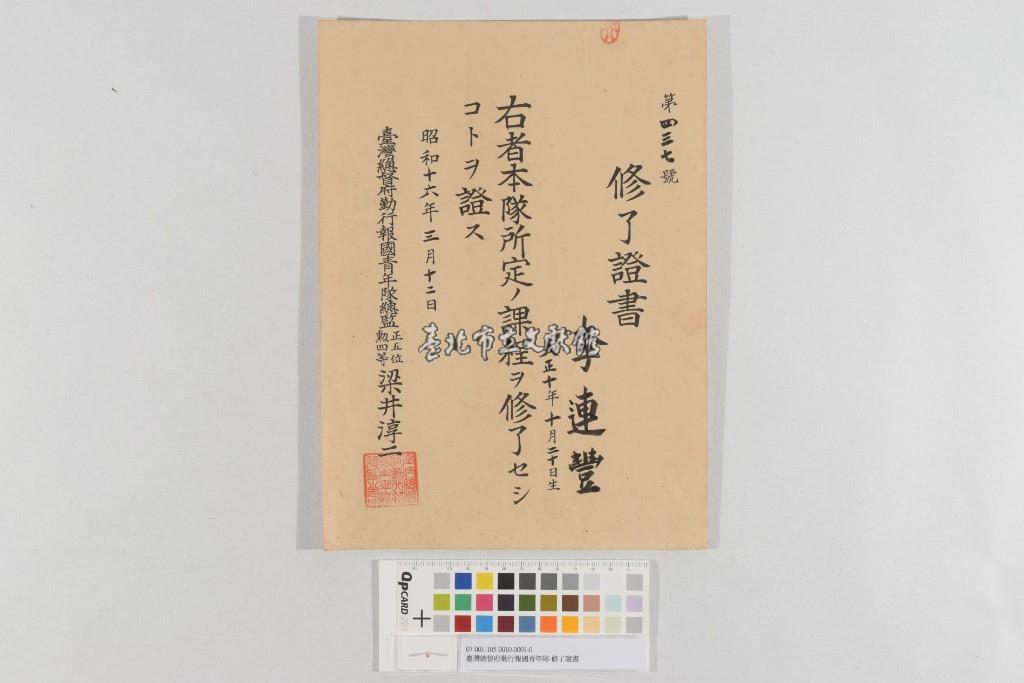 第四三七號
修了證書
李連豐
大正十年十月二十日生
右者本隊所定ノ課程ヲ修了セシ
コトヲ證ス
昭和十六年三月十二日
臺灣總督府勤行報國青年隊總監
正五位
勲四等
梁井淳二
臺北市立文獻館
QpCARD 201
07-001-105-0010-0001-0
臺灣總督府勤行報國青年隊-修了證書